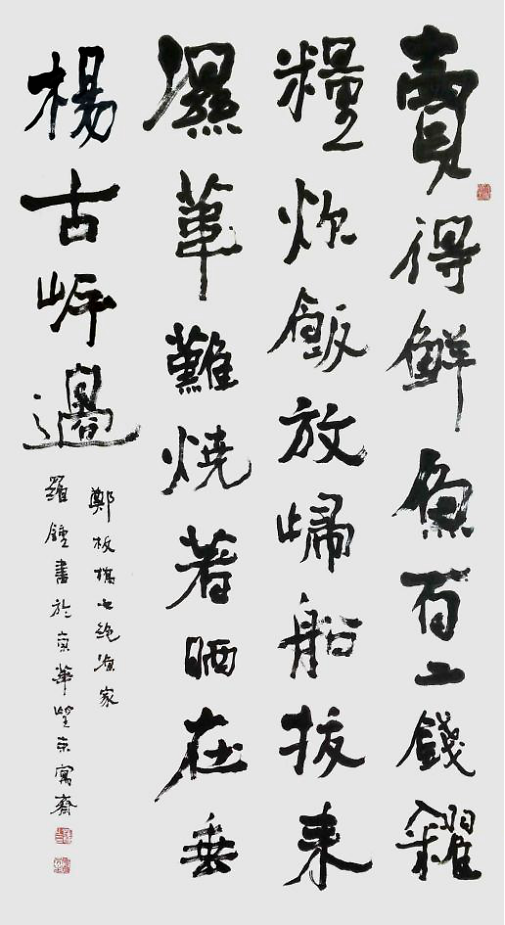 賣得鮮魚百二錢糴
糧炊飯放歸船拔來
濕葦難燒着晒在垂
楊古岸邊
鄭板橋七絕漁家
羅鍾書於京華望京寓齋